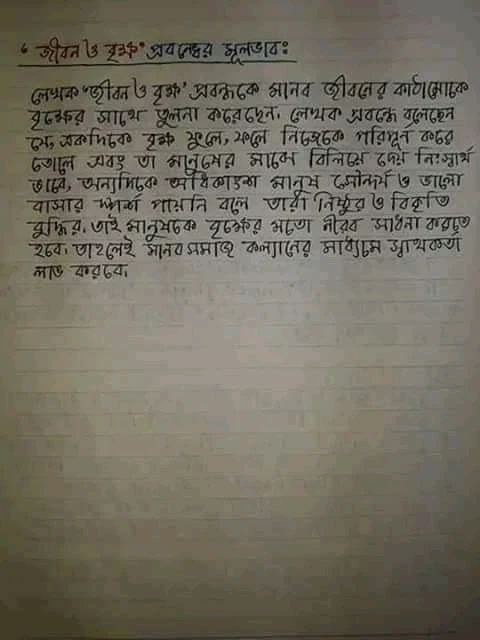 “জীবন ও বৃক্ষ” প্রবন্ধের মূলভাব:
লেখক “জীবন ও বৃক্ষ” প্রবন্ধকে মানব জীবনের কাঠামোকে
বৃক্ষের সাথে তুলনা করেছেন। লেখক প্রবন্ধে বলেছেন
যে, একদিকে বৃক্ষ ফুলে, ফলে নিজেকে পরিপূর্ন করে
তোলে এবং তা মানুষের মাঝে বিলিয়ে দেয় নিঃস্বার্থ
ভাবে, অন্যদিকে অধিকাংশ মানুষ সৌন্দর্য ও ভালো
বাসার স্পর্শ পায়নি বলে তারা নিষ্ঠুর ও বিকৃতি
বুদ্ধির। তাই মানুষকে বৃক্ষের মতো নীরব সাধনা করতে
হবে। তাহলেই মানব সমাজ কল্যানের মাধ্যমে স্বার্থকতা
লাভ করবে।